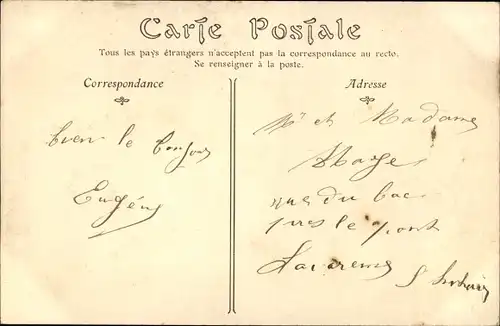 Carte Postale
Tous les pays étrangers n'acceptent pas la correspondance au recto.
Se renseigner à la poste.
Correspondance
Adresse
bien le bonjour
Eugène
Mr et Madame
rue du bac
près le pont